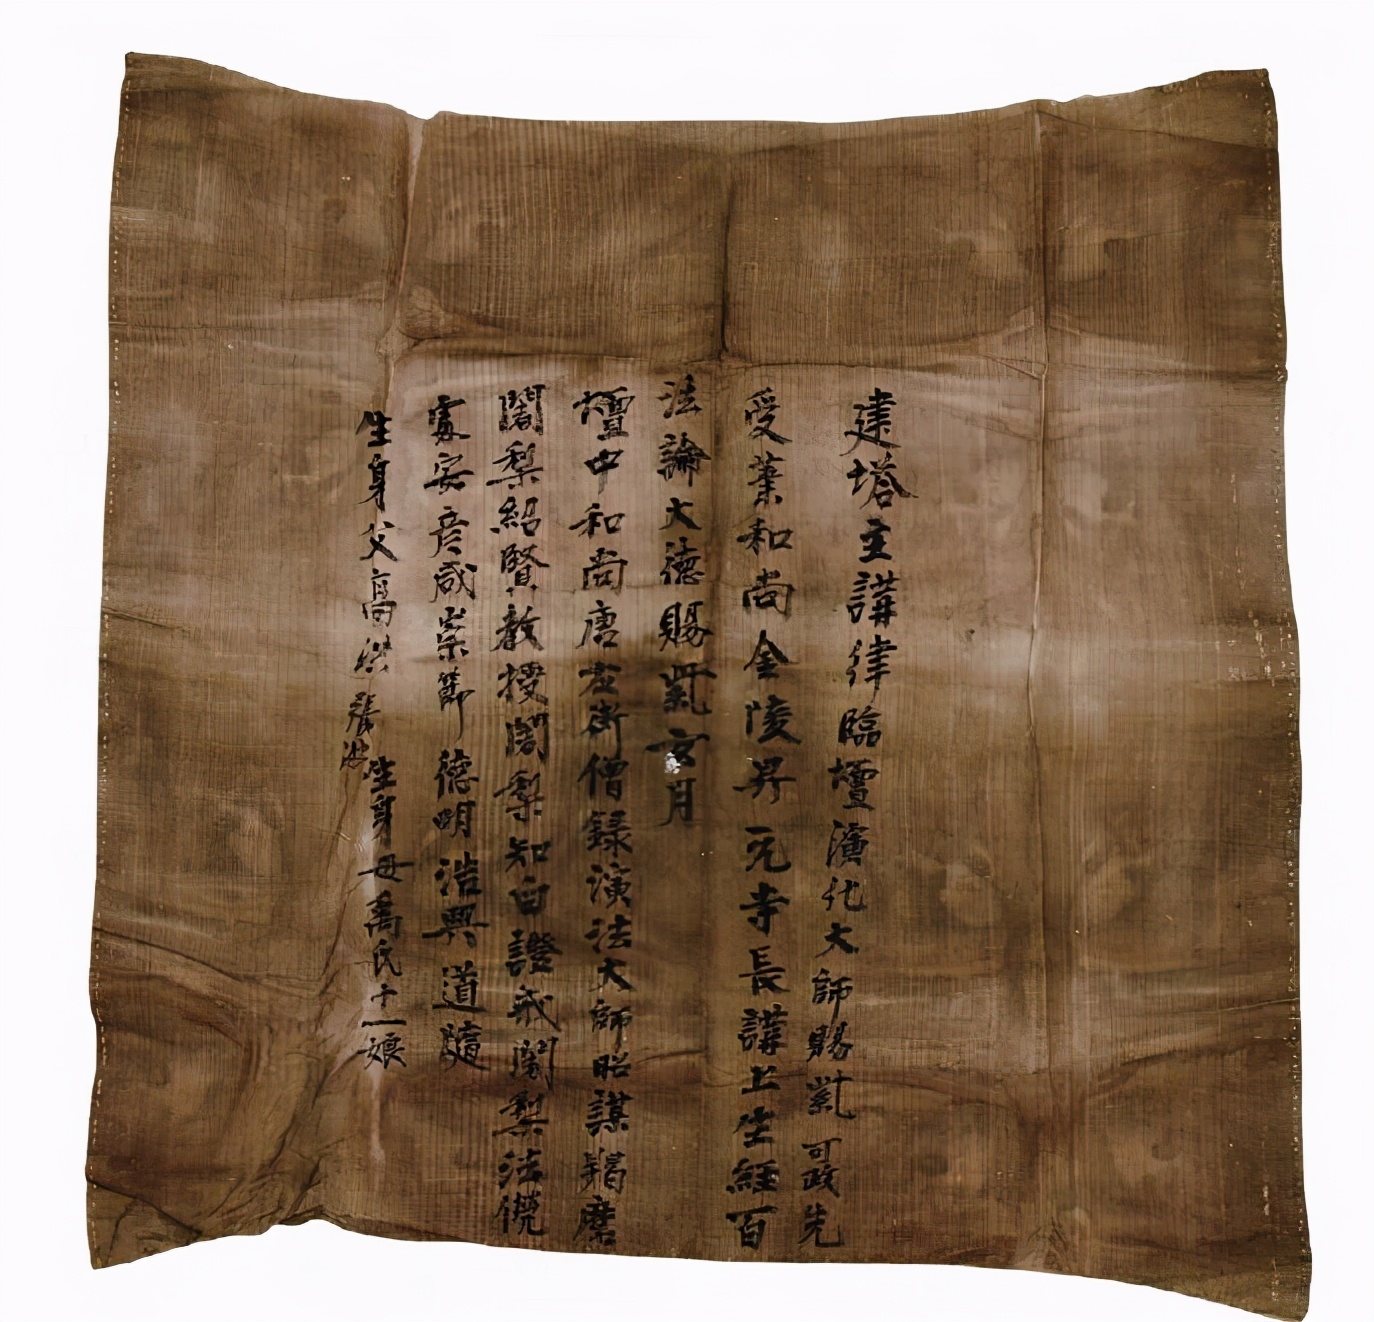 建塔主講律臨壇演化大師賜紫可政先
受業和尚金陵昇元寺長講上生經百
法論大德賜紫玄月
壇中和尚唐左街僧録演法大師昭謀羯磨
闍梨紹賢教授闍梨知白證戒闍梨法俊
安彦咸崇節德明浩興道隨
生身父高 張 生身母高氏十一娘